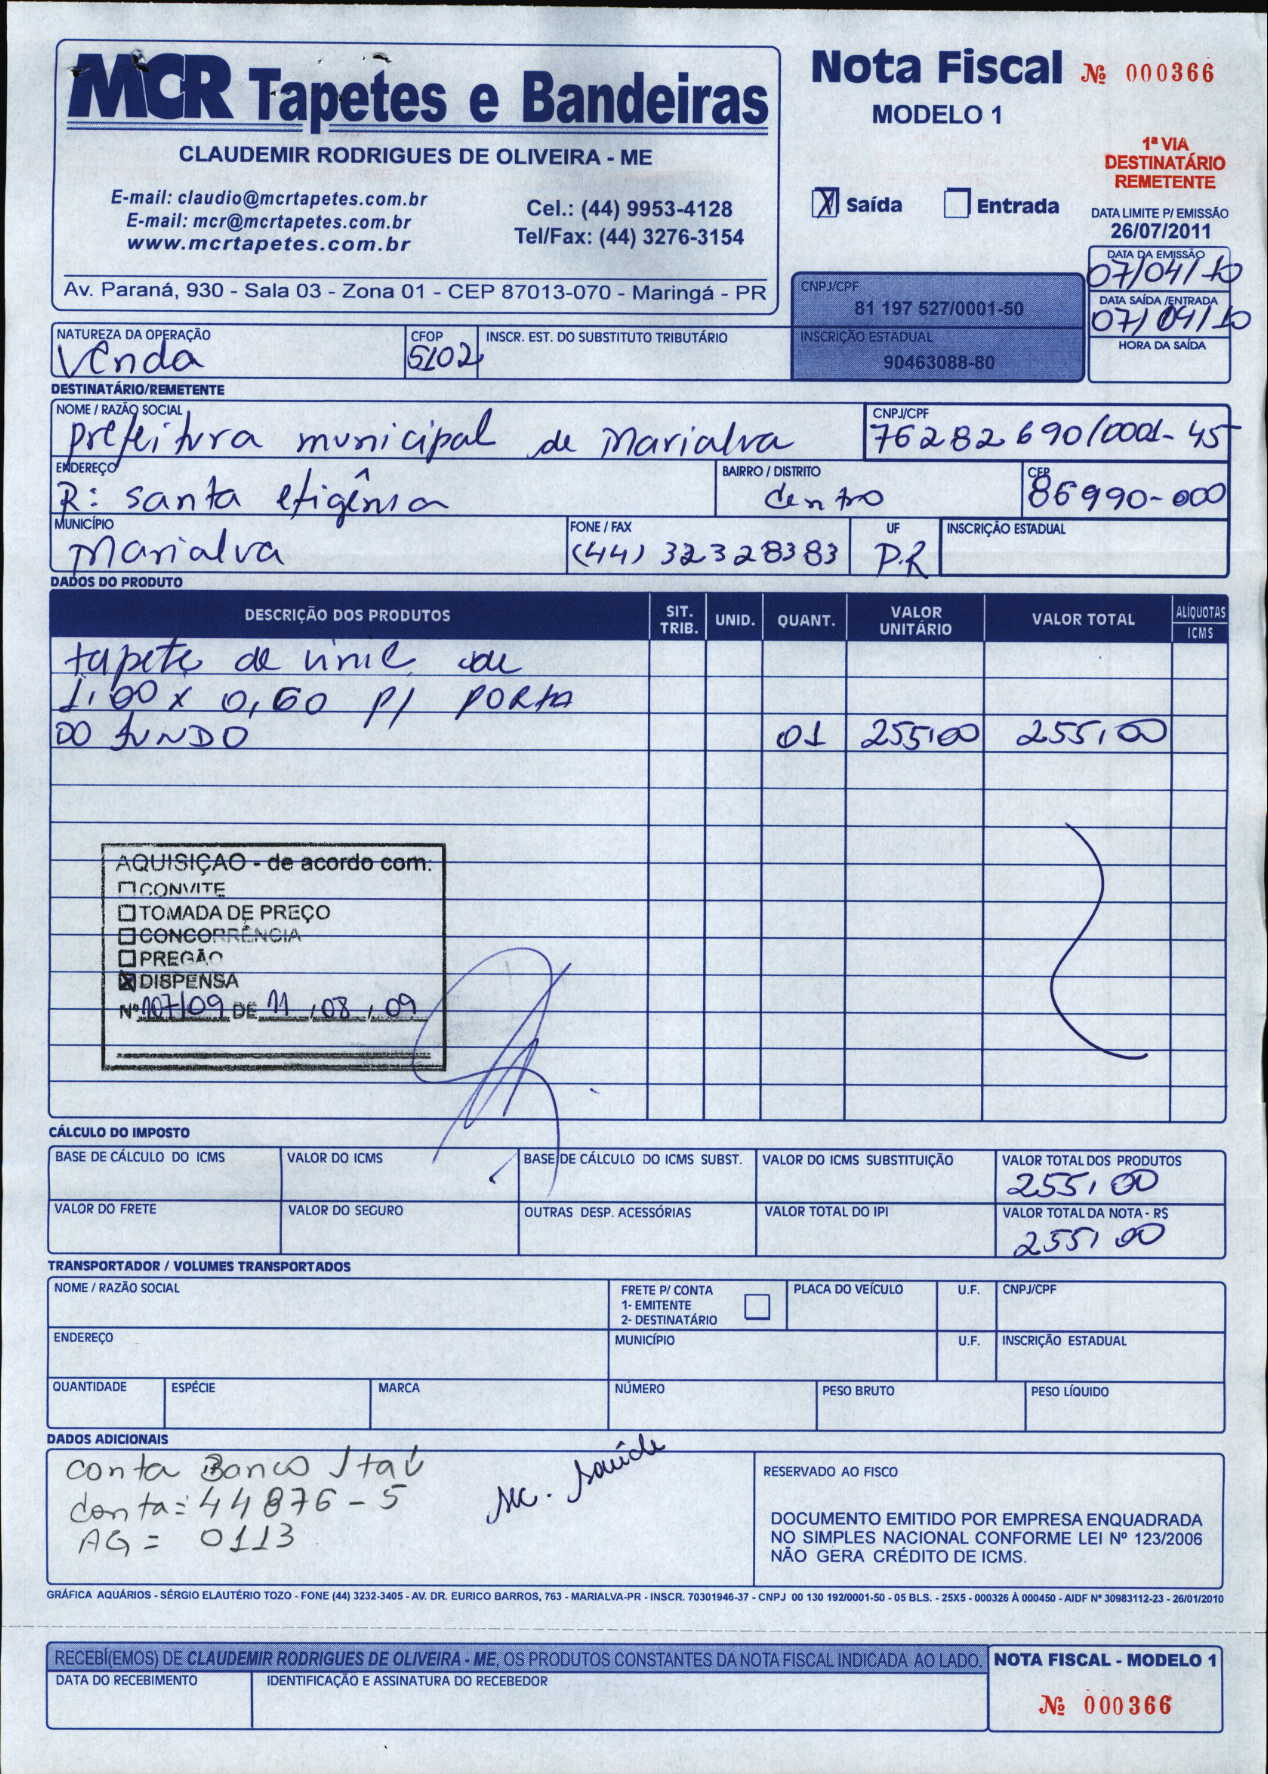 MCR Tapetes e Bandeiras
CLAUDEMIR RODRIGUES DE OLIVEIRA - ME
E-mail: claudio@mcrtapetes.com.br
E-mail: mcr@mcrtapetes.com.br
www.mcrtapetes.com.br
Cel.: (44) 9953-4128
Tel/Fax: (44) 3276-3154
Av. Paraná, 930 - Sala 03 - Zona 01 - CEP 87013-070 - Maringá - PR
Nota Fiscal Nº 000366
MODELO 1
1ª VIA
DESTINATÁRIO
REMETENTE
X Saída Entrada
DATA LIMITE P/ EMISSÃO
26/07/2011
DATA DA EMISSÃO
07/04/10
DATA SAÍDA/ENTRADA
07/04/10
HORA DA SAÍDA
CNPJ/CPF
81 197 527/0001-50
INSCRIÇÃO ESTADUAL
90463088-80
NATUREZA DA OPERAÇÃO CFOP INSCR. EST. DO SUBSTITUTO TRIBUTÁRIO
Venda 5102
DESTINATÁRIO/REMETENTE
NOME / RAZÃO SOCIAL CNPJ/CPF
prefeitura municipal de Marialva 76282690/0001-45
ENDEREÇO BAIRRO / DISTRITO CEP
R: santa efigênia centro 86990-000
MUNICÍPIO FONE / FAX UF INSCRIÇÃO ESTADUAL
Marialva (44) 32328383 P.R
DADOS DO PRODUTO
DESCRIÇÃO DOS PRODUTOS SIT. TRIB. UNID. QUANT. VALOR UNITÁRIO VALOR TOTAL ALÍQUOTAS ICMS
tapete de vinil de
1,00 x 0,60 P/ PORTA
DO FUNDO 01 255,00 255,00
AQUISIÇÃO - de acordo com:
CONVITE
TOMADA DE PREÇO
CONCORRÊNCIA
PREGÃO
DISPENSA
Nº 107/09 DE 11/08/09
CÁLCULO DO IMPOSTO
BASE DE CÁLCULO DO ICMS VALOR DO ICMS BASE DE CÁLCULO DO ICMS SUBST. VALOR DO ICMS SUBSTITUIÇÃO VALOR TOTAL DOS PRODUTOS
255,00
VALOR DO FRETE VALOR DO SEGURO OUTRAS DESP. ACESSÓRIAS VALOR TOTAL DO IPI VALOR TOTAL DA NOTA - R$
255,00
TRANSPORTADOR / VOLUMES TRANSPORTADOS
NOME / RAZÃO SOCIAL FRETE P/ CONTA PLACA DO VEÍCULO U.F. CNPJ/CPF
1- EMITENTE
2- DESTINATÁRIO
ENDEREÇO MUNICÍPIO U.F. INSCRIÇÃO ESTADUAL
QUANTIDADE ESPÉCIE MARCA NÚMERO PESO BRUTO PESO LÍQUIDO
DADOS ADICIONAIS
conta Banco Itaú
conta= 44876-5
AG= 0113
sec. saúde
RESERVADO AO FISCO
DOCUMENTO EMITIDO POR EMPRESA ENQUADRADA
NO SIMPLES NACIONAL CONFORME LEI Nº 123/2006
NÃO GERA CRÉDITO DE ICMS.
GRÁFICA AQUÁRIOS - SÉRGIO ELAUTÉRIO TOZO - FONE (44) 3232-3405 - AV. DR. EURICO BARROS, 763 - MARIALVA-PR - INSCR. 70301946-37 - CNPJ 00 130 192/0001-50 - 05 BLS. - 25X5 - 000326 À 000450 - AIDF Nº 30983112-23 - 26/01/2010
RECEBÍ(EMOS) DE CLAUDEMIR RODRIGUES DE OLIVEIRA - ME, OS PRODUTOS CONSTANTES DA NOTA FISCAL INDICADA AO LADO.
DATA DO RECEBIMENTO IDENTIFICAÇÃO E ASSINATURA DO RECEBEDOR
NOTA FISCAL - MODELO 1
Nº 000366